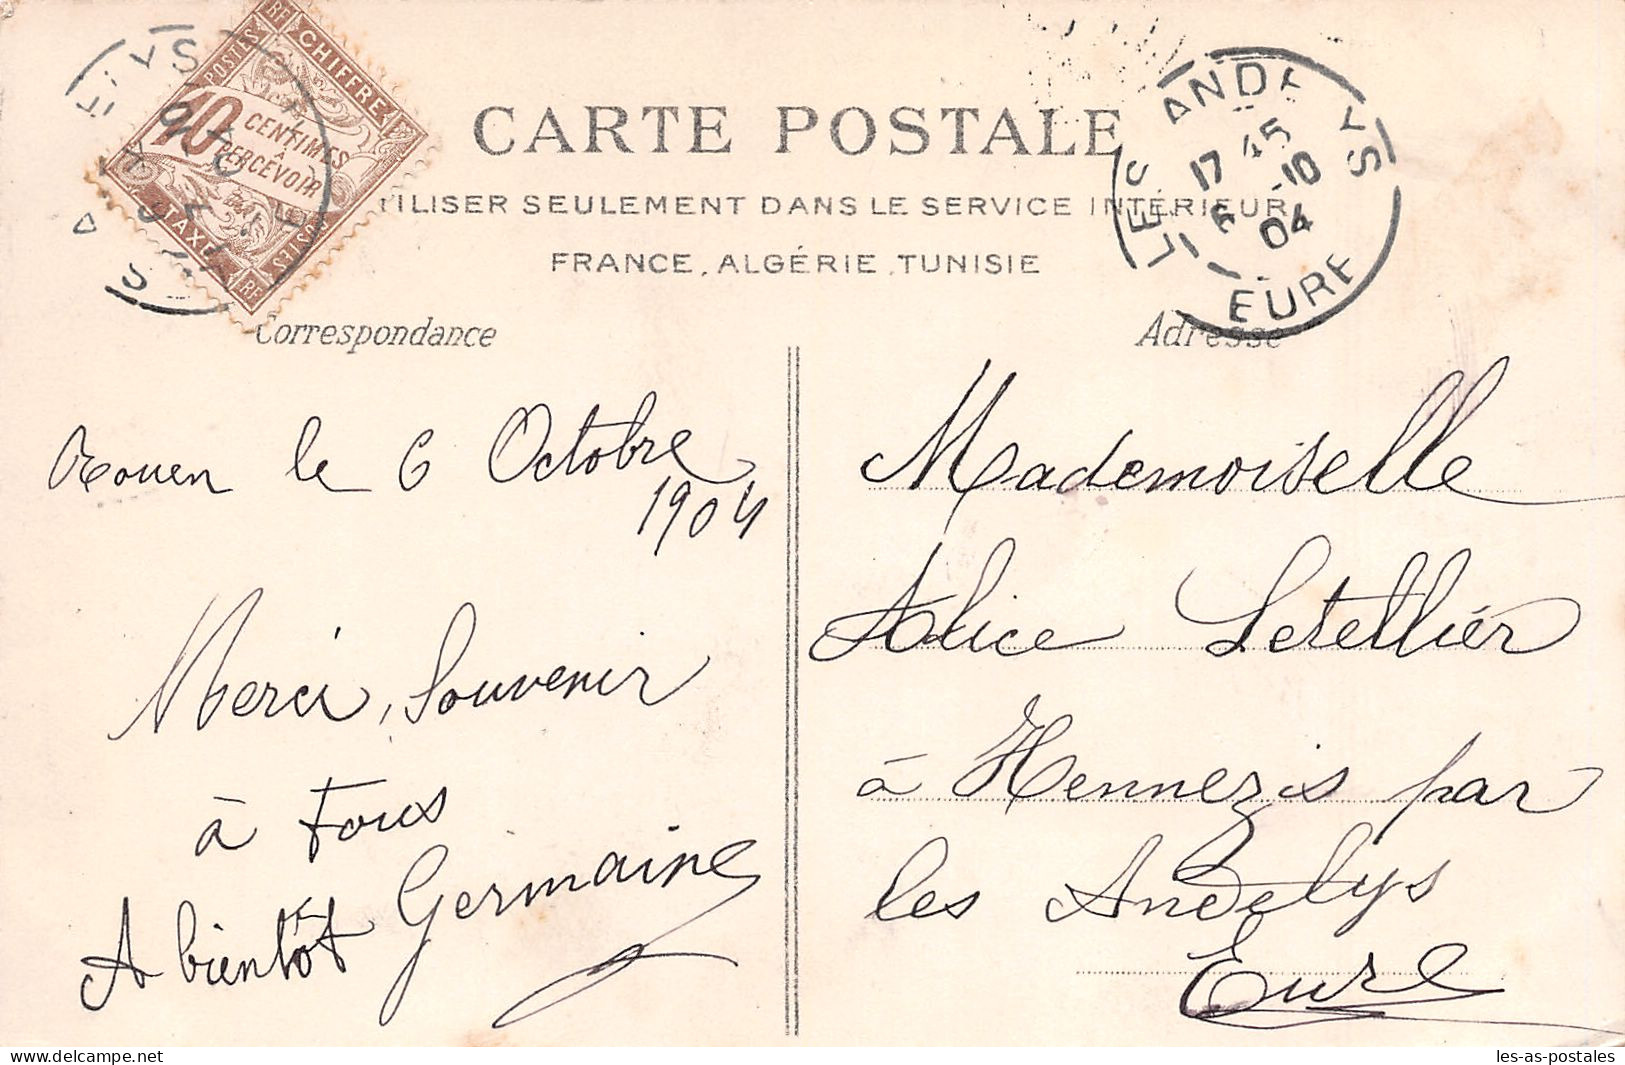 RF
POSTES
CHIFFRE
10 CENTIMES
À
PERCEVOIR
TAXE
POSTES
RF
CARTE POSTALE
TILISER SEULEMENT DANS LE SERVICE INTÉRIEUR
FRANCE, ALGÉRIE, TUNISIE
LES ANDELYS
17 45
6 -10
04
EURE
Correspondance
Adresse
Rouen le 6 Octobre
1904
Merci, Souvenir
à Tous
Germaine
A bientôt
Mademoiselle
Alice Letelliér
à Hennezis par
les Andelys
Eure
delcampe.net
les-as-postales